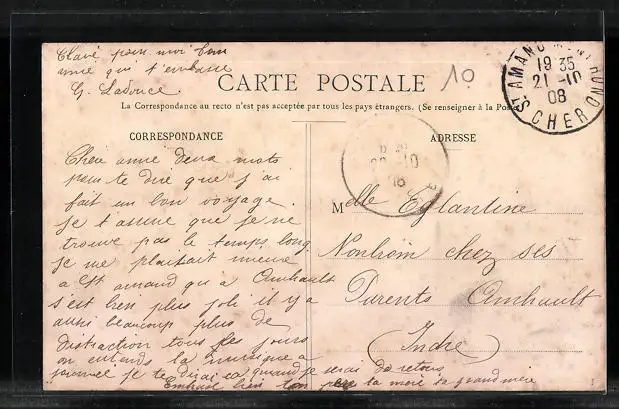 Clavé pour moi bon
amie qui t'embrasse
G. Ladouce
10
CARTE POSTALE
La Correspondance au recto n'est pas acceptée par tous les pays étrangers. (Se renseigner à la Poste
ST AMAND MONTROND
19 35
21 -10
08
CHER
CORRESPONDANCE
ADRESSE
Chère amie deux mots
pour te dire que j'ai
fait un bon voyage.
je t'assure que je ne
trouve pas le temps long
je me plaisait mieux
a st amand qu'a Ambrault
s'est bien plus joli il y a
aussi beaucoup plus de
distraction tous les jours
on entends la musique a
journee je te dirai ca quand je serai de retour
Embrasse bien ton père ta mère ta grand mère
-10
08
Melle Eglantine
chez ses
Parents Ambrault
(Indre)